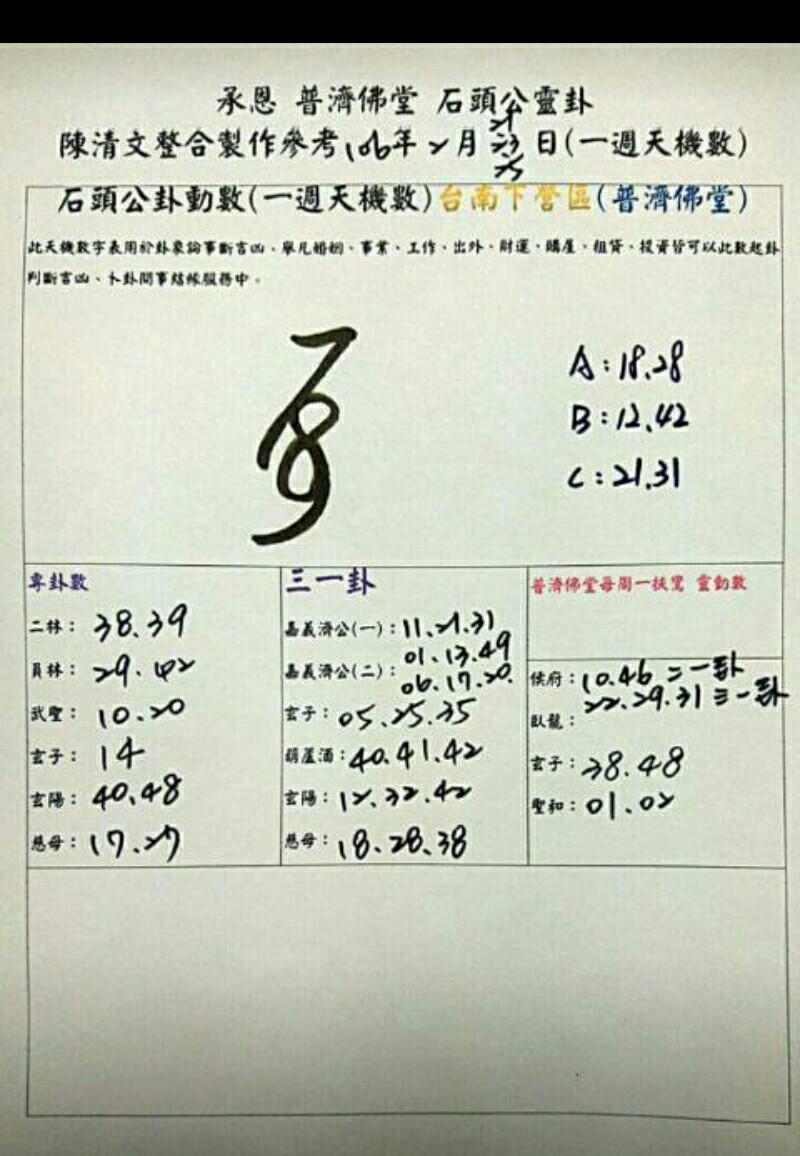 承恩 普濟佛堂 石頭公靈卦
陳清文整合製作參考106年2月23日(一週天機數)
石頭公卦動數(一週天機數)台南下營區(普濟佛堂)
此天機數字表用於卦象論事斷吉凶、舉凡婚姻、事業、工作、出外、財運、購屋、租貸、投資皆可以此數起卦
判斷吉凶、卜卦問事結緣服務中。
A:18.28
B:12.42
C:21.31
專卦數
二林: 38.39
員林: 29.42
武聖: 10.20
玄子: 14
玄陽: 40.48
慈母: 17.27
三一卦
嘉義濟公(一): 11.21.31
01.13.49
嘉義濟公(二): 06.17.20.
玄子: 05.25.35
葫蘆酒: 40.41.42
玄陽: 12.32.42
慈母: 18.28.38
普濟佛堂每周一扶鸞 靈動數
侯府: 10.46 二一卦
22.29.31 三一卦
臥龍:
玄子: 38.48
聖和: 01.02